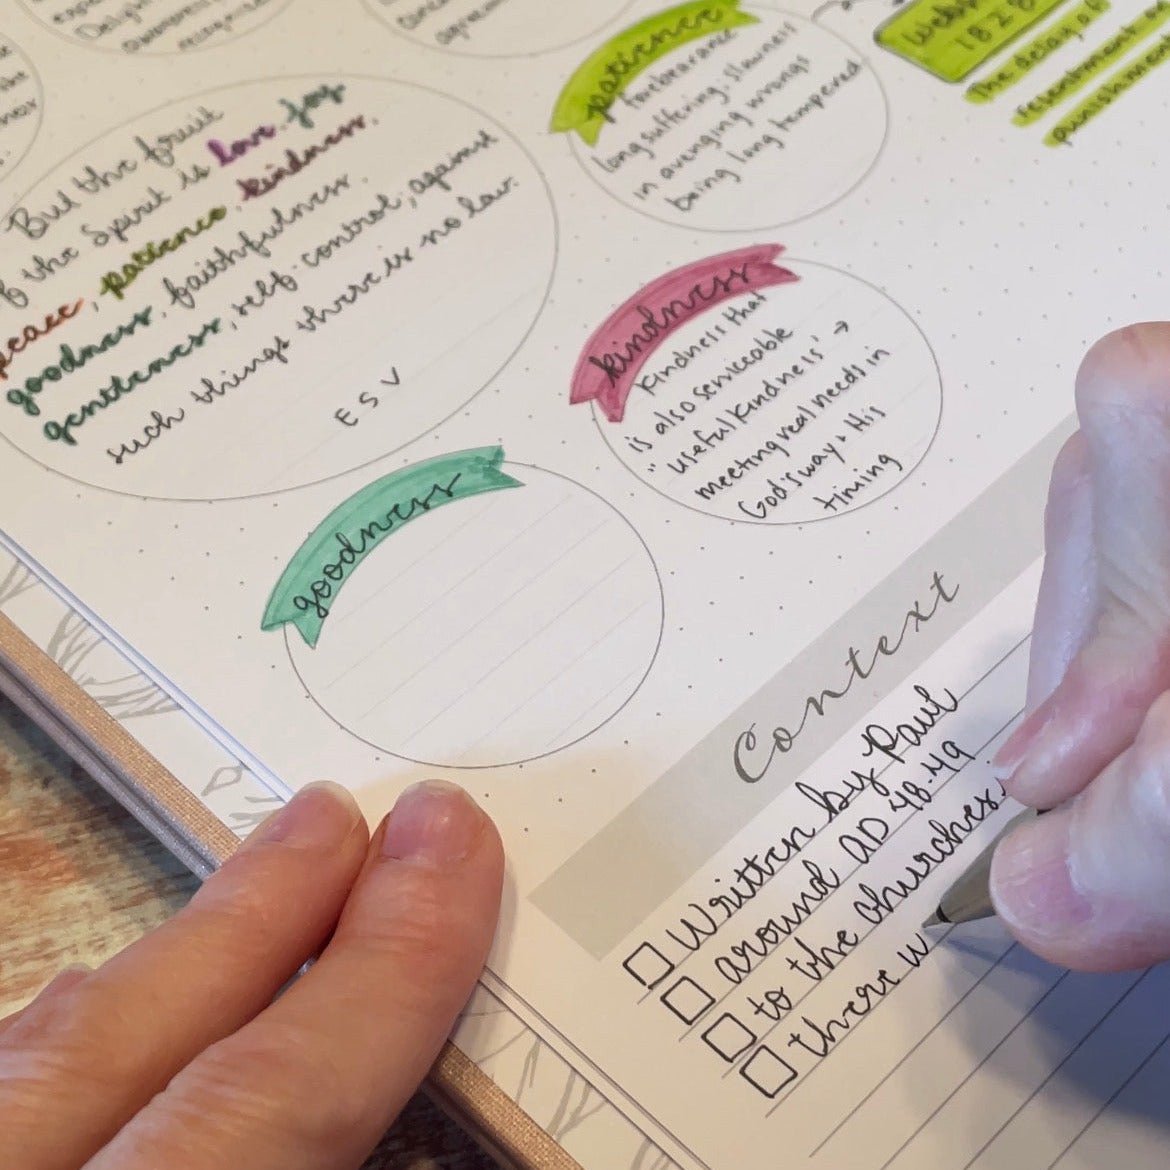 Delig
awareness
recogni
agree
the
But the fruit
of the Spirit is love, joy,
peace, patience, kindness,
goodness, faithfulness,
gentleness, self-control; against
such things there is no law.
ESV
patience
forbearance
longsuffering; slowness
in avenging wrongs
being long tempered
1828
the delay of
resentment or
punishment
kindness
kindness that
is also serviceable
"useful kindness" →
meeting real needs in
God's way + His
timing
goodness
Context
Written by Paul
around AD 48-49
to the churches
there w